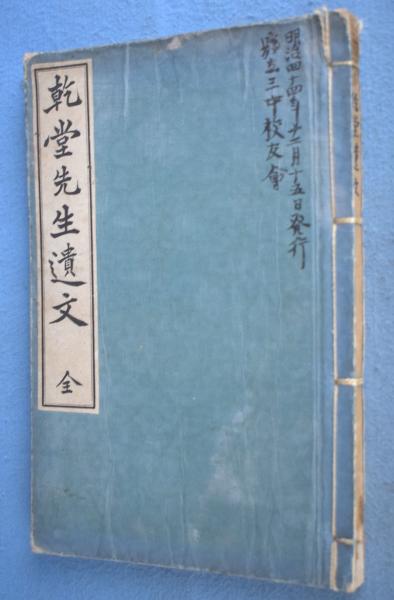 明治四十四年十二月十五日発行
縣立三中校友會
乾堂先生遺文
全
乾堂遺文